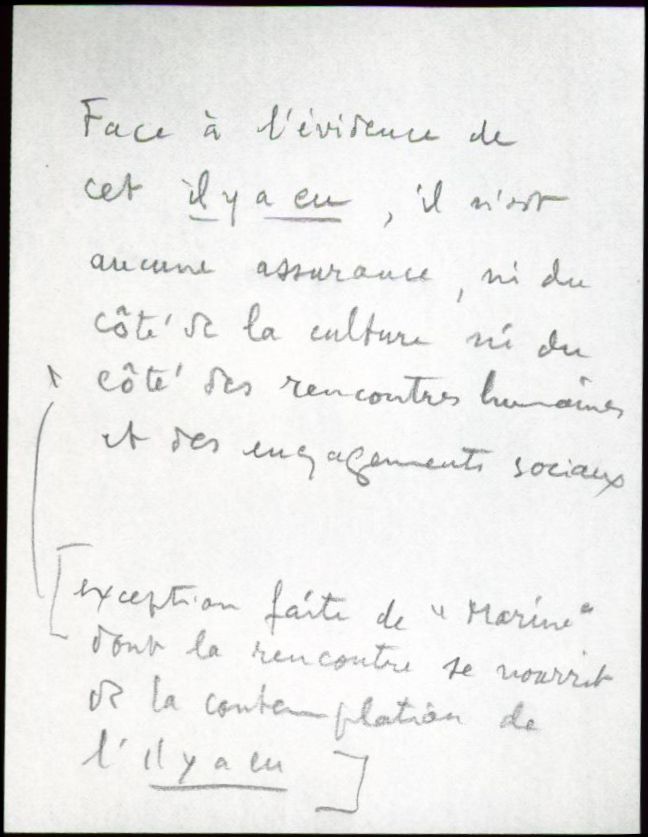 Face à l'évidence de
cet il y a eu, il n'est
aucune assurance, ni du
côté de la culture ni du
côté des rencontres humaines
et des engagements sociaux
[exception faite de "Marine"
dont la rencontre se nourrit
de la contemplation de
l'il y a eu]